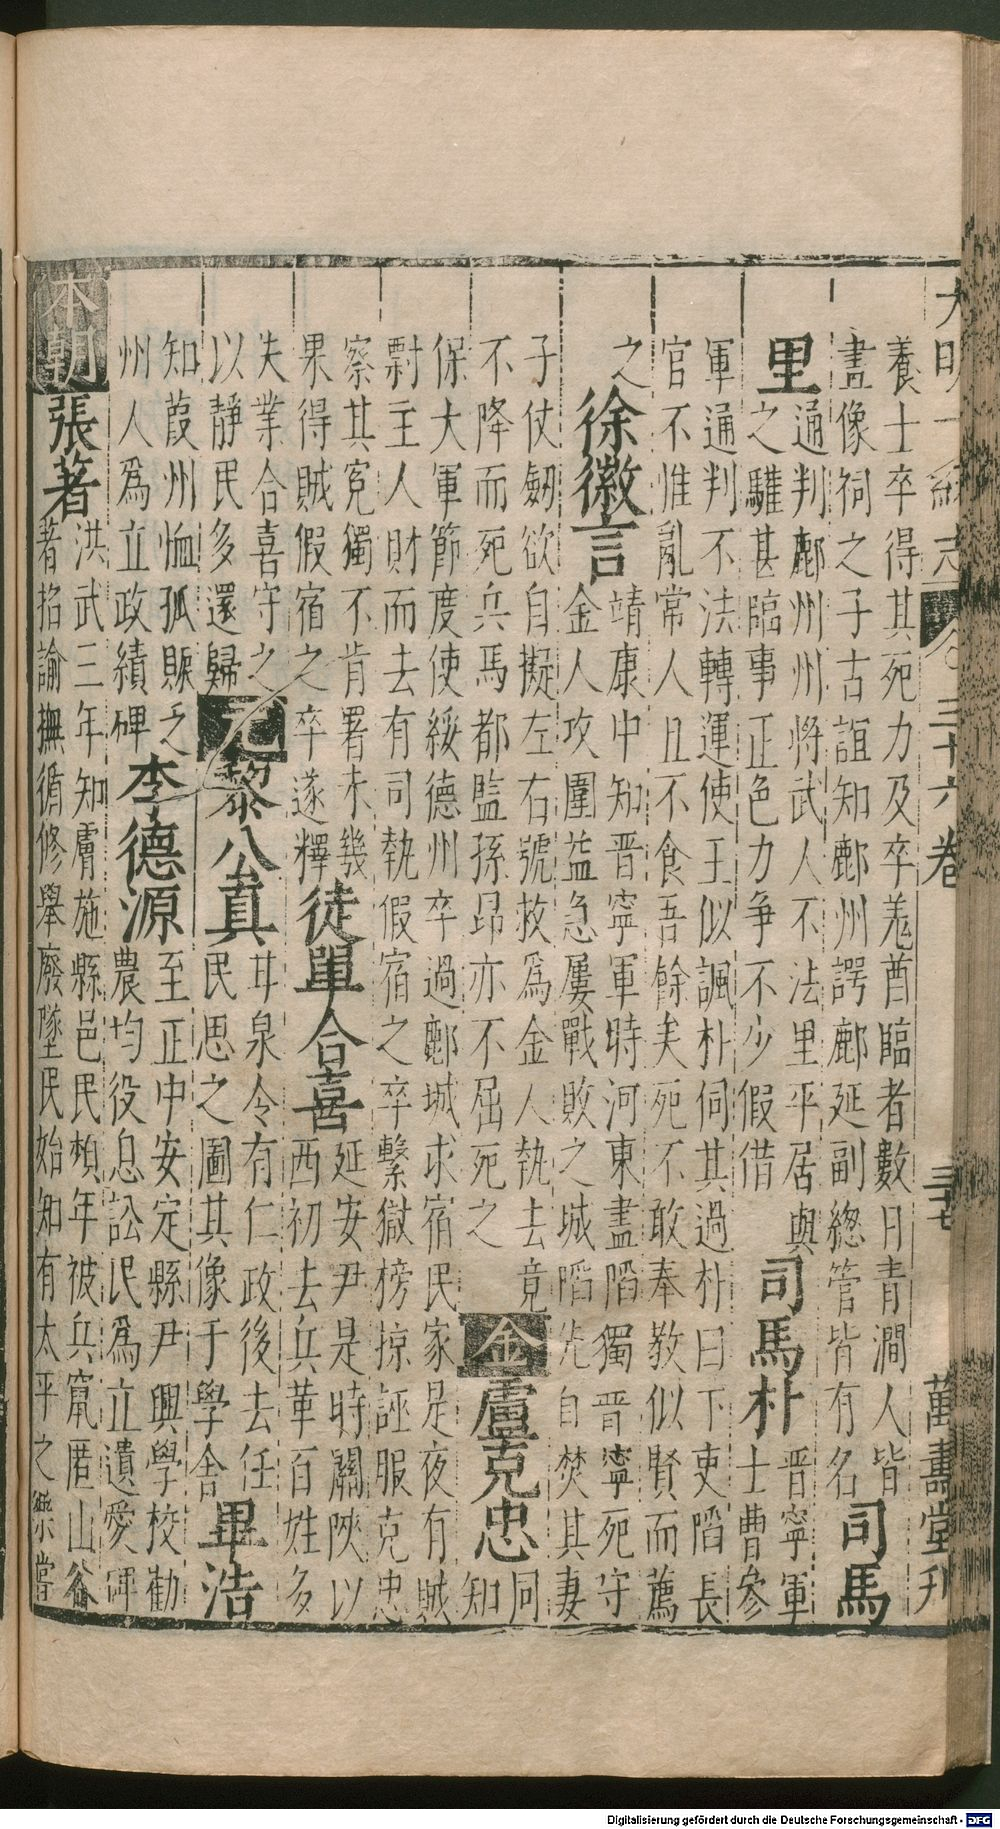 大明一統志 三十六卷 三十七 萬壽堂刊
養士卒得其死力及卒羗酋臨者數日青澗人皆
畫像祠之子古誼知鄜州諤鄜延副總管皆有名 司馬
里 通判鄜州州將武人不法里平居與
之驩甚臨事正色力爭不少假借 司馬朴 晉寧軍
士曹參
軍通判不法轉運使王似諷朴伺其過朴曰下吏陷長
官不惟亂常人且不食吾餘矣死不敢奉教似賢而薦
之 徐徽言 靖康中知晉寧軍時河東盡陷獨晉寧死守
金人攻圍益急屢戰敗之城陷先自焚其妻
子仗劒欲自擬左右號救爲金人執去竟
不降而死兵馬都監孫昂亦不屈死之 金 盧克忠 同
知
保大軍節度使綏德州卒過鄜城求宿民家是夜有賊
剽主人財而去有司執假宿之卒繫獄榜掠誣服克忠
察其寃獨不肯署未幾
果得賊假宿之卒遂釋 徒單合喜 延安尹是時關陜以
西初去兵革百姓多
失業合喜守之
以靜民多還歸 元 黎公真 甘泉令有仁政後去任
民思之圖其像于學舍 畢浩
知葭州恤孤賑乏
州人爲立政績碑 李德源 至正中安定縣尹興學校勸
農均役息訟民爲立遺愛碑
本朝 張著 洪武三年知膚施縣邑民頻年被兵竄匿山谷
著招諭撫循修舉廢墜民始知有太平之樂嘗